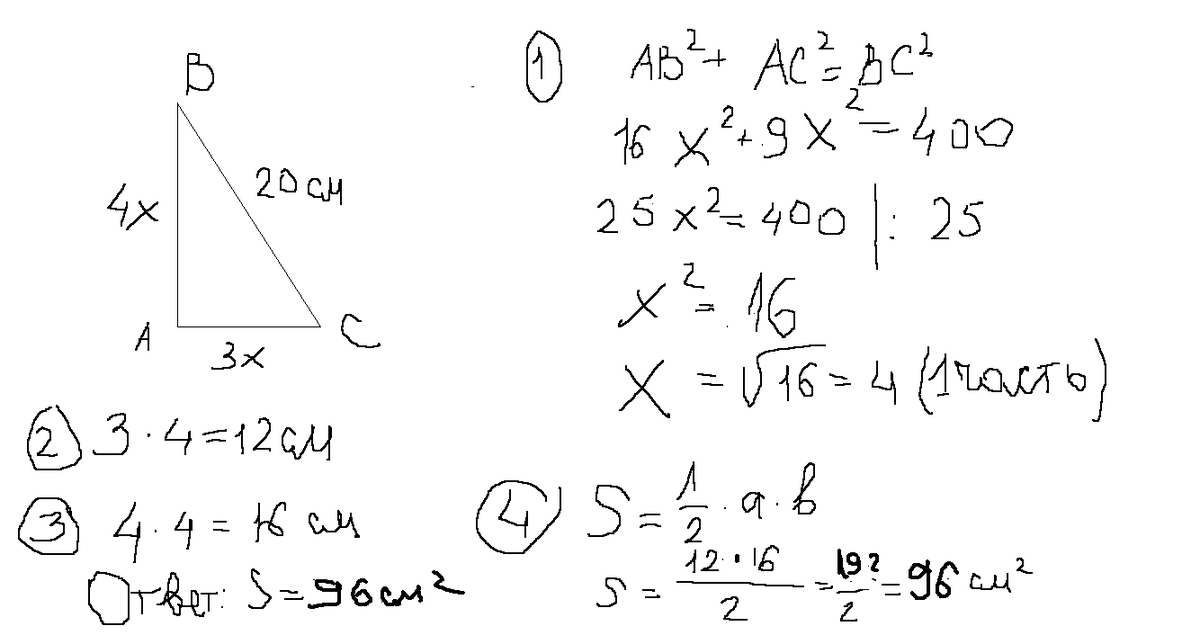 B
4x
20 см
A
3x
C
① AB² + AC² = BC²
16x² + 9x² = 400
25x² = 400 | : 25
x² = 16
x = √16 = 4 (1 часть)
② 3 · 4 = 12 см
③ 4 · 4 = 16 см
Ответ: S = 96 см²
④ S = 1/2 · a · b
S = 12 · 16 / 2 = 192/2 = 96 см²